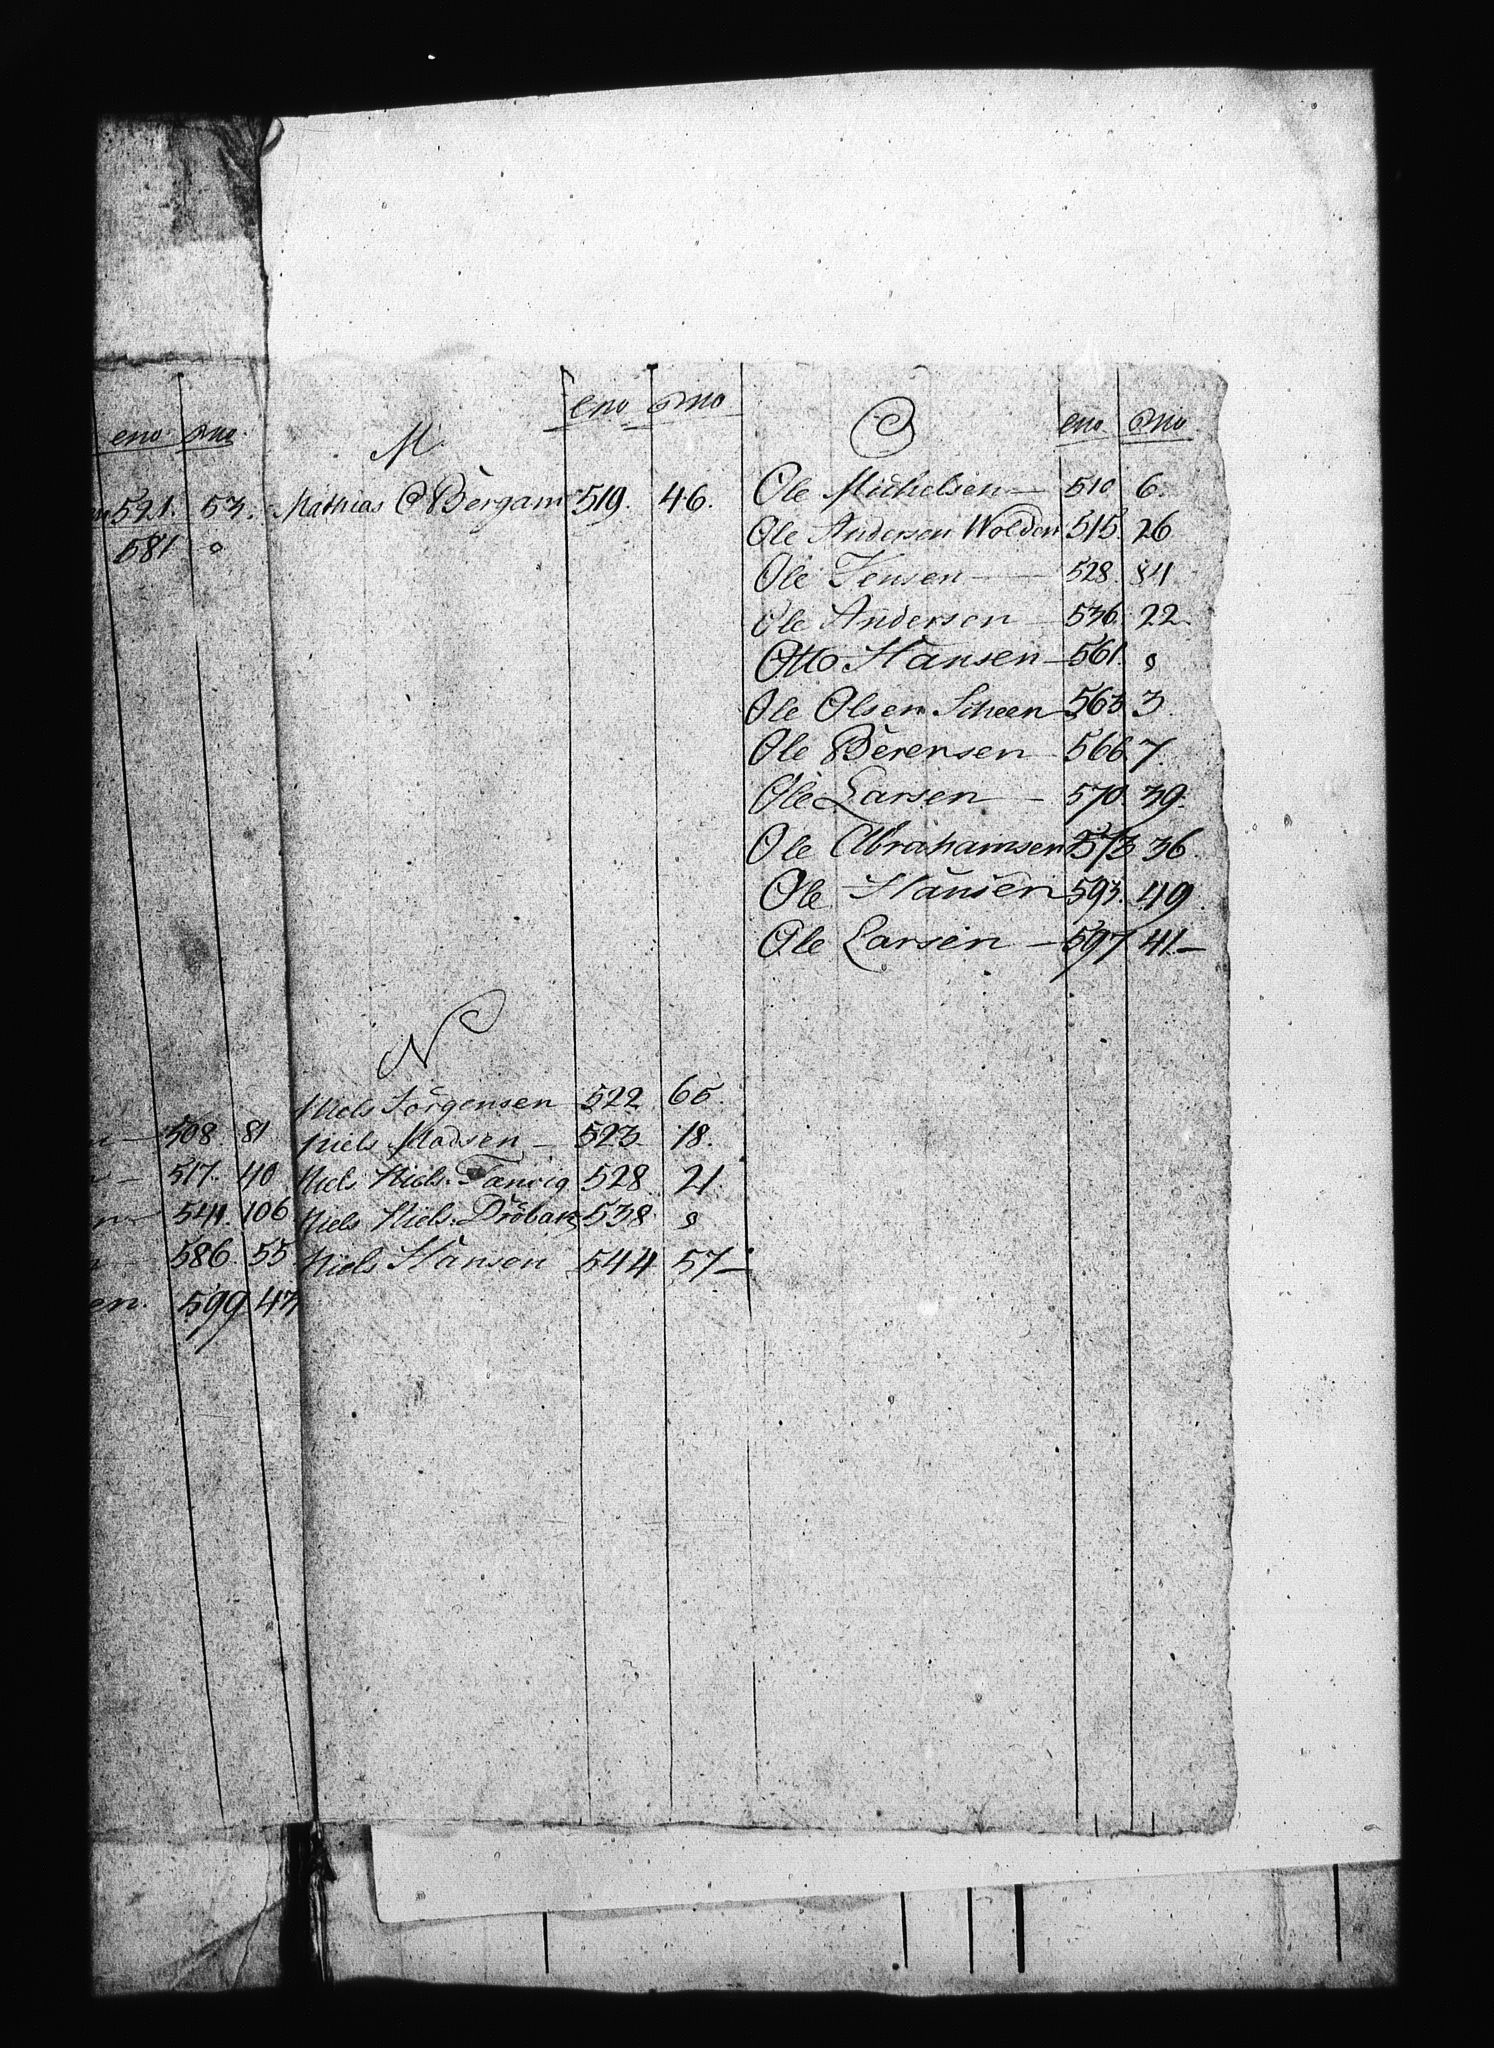 eno
521. 53.
581
508 81
517. 40
541. 106
586. 55
en. 599 47
M eno
Mathias O Bergam 519. 46.
N
Niels Jörgensen 522 65.
Niels Madsen — 523. 18.
Niels Niels. Tanvig 528. 21
Niels Niels. Dröbak 538
Niels Hansen 544 57 —
O eno
Ole Michelsen — 510 6.
Ole Andersen Wolden 515. 26
Ole Jensen — 528. 84
Ole Andersen — 536. 22
Otto Hansen — 561.
Ole Olsen Scheen 563 3.
Ole Berensen — 566. 7.
Ole Larsen — 570. 39.
Ole Abrahamsen 573 36.
Ole Hansen 593. 49.
Ole Larsen — 597 41 —